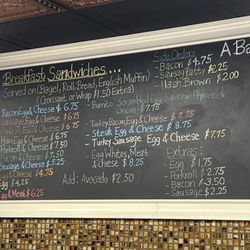 Breakfast Sandwiches...
Served on (Bagel, Roll, Bread, English Muffin)
(Croissant or Wrap $1.50 Extra)
Bacon Egg & Cheese $6.75
Sausage Egg & Cheese $6.75
Egg & Cheese
Ham Egg & Cheese $6.75
Egg & Cheese $
Bacon & Cheese $
Sausage & Cheese $5.25
Egg & Cheese $4.75
Egg $4.25
Egg & Meat $6.25
Burrito
$7.75
Turkey Bacon Egg & Cheese $7.75
Steak Egg & Cheese $8.75
Turkey Sausage Egg & Cheese $7.75
Egg Whites, Meat
& Cheese $8.25
Add: Avocado $2.50
Side Orders
- Bacon $4.75
- Sausage Patty $2.25
- Hash Brown $2.00
Extras -
- Egg $1.75
- Porkroll $2.75
- Bacon $3.50
- Sausage $2.25
A Ba